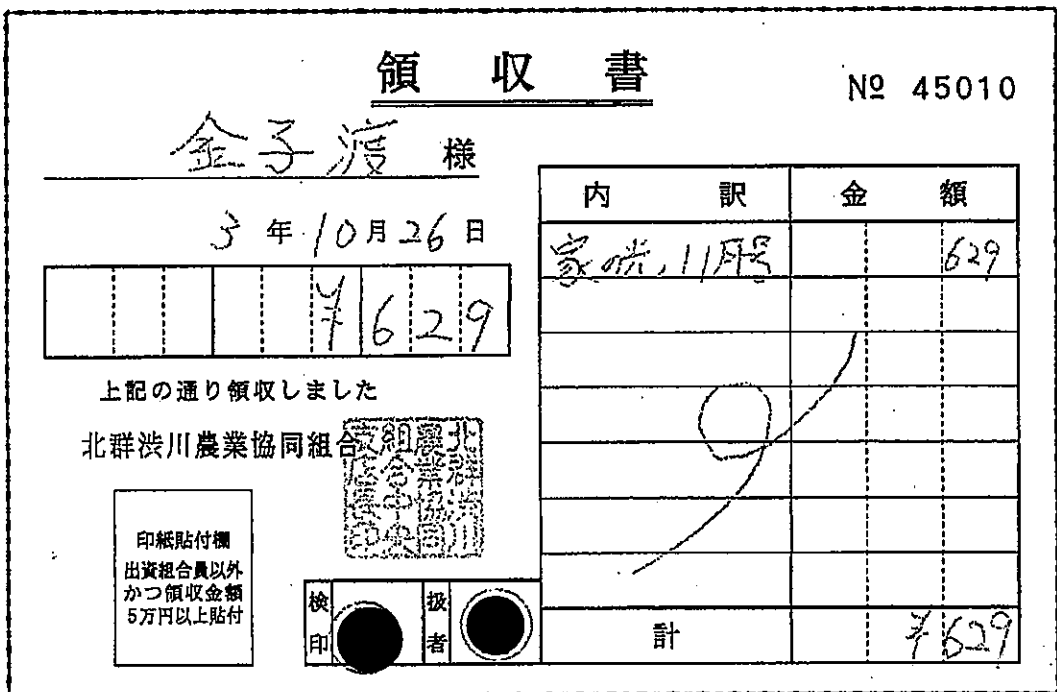 領収書
№ 45010
金子渡 様
3年10月26日
¥629
上記の通り領収しました
北群渋川農業協同組合
北群渋川
農業協同
組合中央
支店長印
印紙貼付欄
出資組合員以外
かつ領収金額
5万円以上貼付
検印
扱者
内訳 金額
家の光、11月号 629
計 ¥629